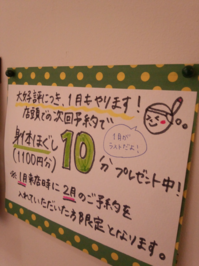 大好評につき、1月もやります!
店頭での次回予約で
身体ほぐし
(1100円分)
10分プレゼント中!
1月が
ラストだよ!
※1月来店時に2月のご予約を
入れていただいた方限定となります。